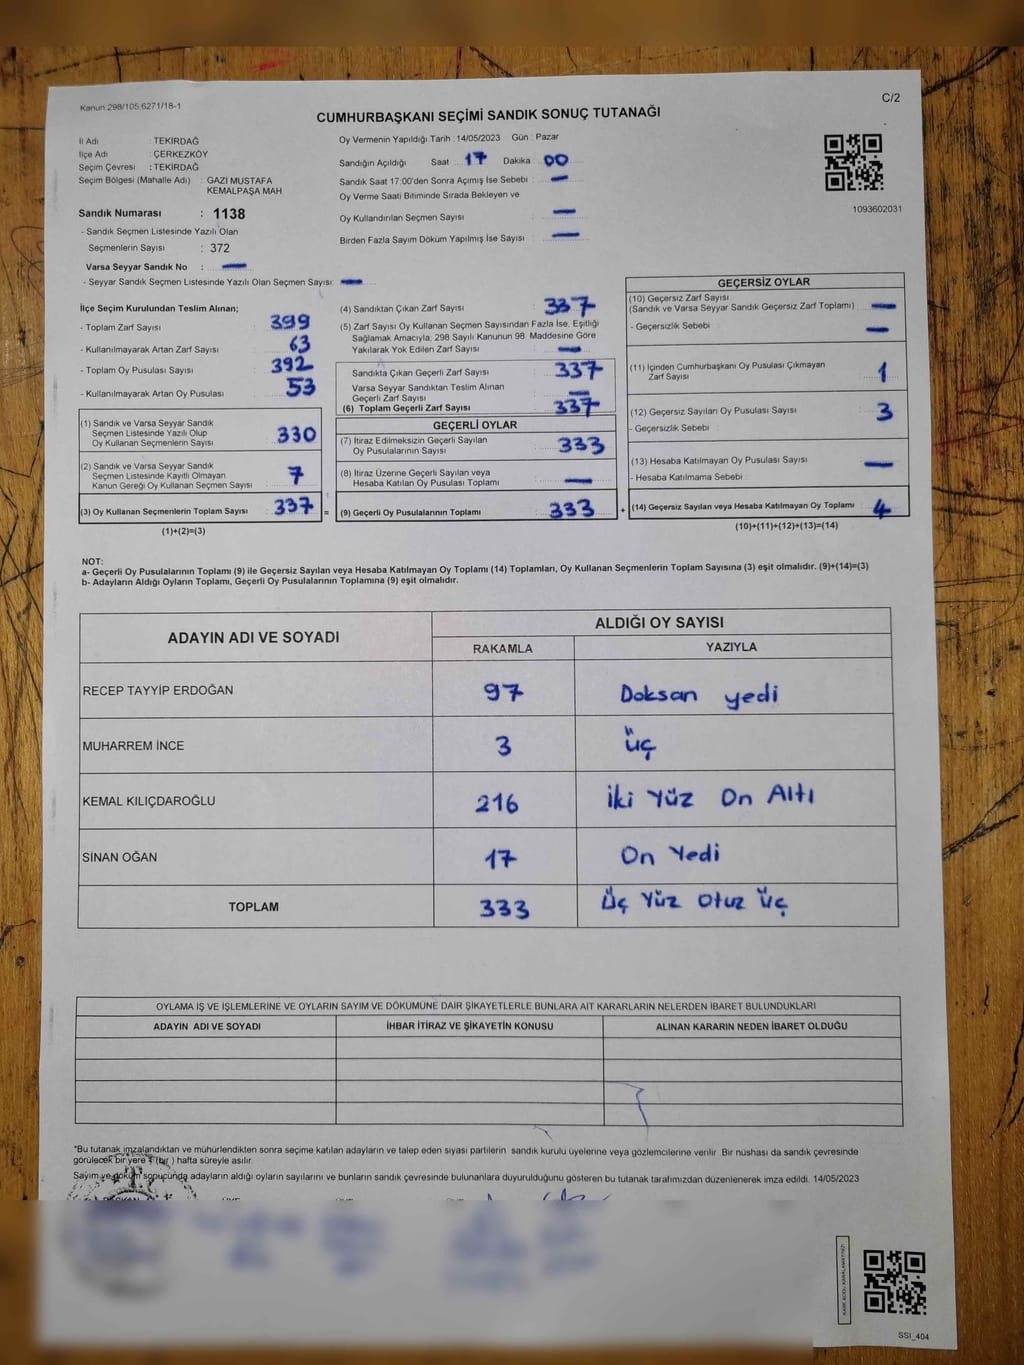 Kanun:298/105,6271/18-1
C/2
CUMHURBAŞKANI SEÇİMİ SANDIK SONUÇ TUTANAĞI
İl Adı : TEKİRDAĞ
İlçe Adı : ÇERKEZKÖY
Seçim Çevresi : TEKİRDAĞ
Seçim Bölgesi (Mahalle Adı) : GAZI MUSTAFA
KEMALPAŞA MAH
Sandık Numarası : 1138
- Sandık Seçmen Listesinde Yazılı Olan
Seçmenlerin Sayısı : 372
Varsa Seyyar Sandık No : —
- Seyyar Sandık Seçmen Listesinde Yazılı Olan Seçmen Sayısı: —
Oy Vermenin Yapıldığı Tarih : 14/05/2023 Gün : Pazar
Sandığın Açıldığı Saat : 17 Dakika : 00
Sandık Saat 17:00'den Sonra Açımış İse Sebebi : —
Oy Verme Saati Bitiminde Sırada Bekleyen ve
Oy Kullandırılan Seçmen Sayısı : —
Birden Fazla Sayım Döküm Yapılmış İse Sayısı : —
1093602031
İlçe Seçim Kurulundan Teslim Alınan;
- Toplam Zarf Sayısı : 399
- Kullanılmayarak Artan Zarf Sayısı : 63
- Toplam Oy Pusulası Sayısı : 392
- Kullanılmayarak Artan Oy Pusulası : 53
(1) Sandık ve Varsa Seyyar Sandık
Seçmen Listesinde Yazılı Olup
Oy Kullanan Seçmenlerin Sayısı : 330
(2) Sandık ve Varsa Seyyar Sandık
Seçmen Listesinde Kayıtlı Olmayan
Kanun Gereği Oy Kullanan Seçmen Sayısı : 7
(3) Oy Kullanan Seçmenlerin Toplam Sayısı : 337 =
(1)+(2)=(3)
(4) Sandıktan Çıkan Zarf Sayısı : 337
(5) Zarf Sayısı Oy Kullanan Seçmen Sayısından Fazla İse, Eşitliği
Sağlamak Amacıyla, 298 Sayılı Kanunun 98. Maddesine Göre
Yakılarak Yok Edilen Zarf Sayısı : —
Sandıkta Çıkan Geçerli Zarf Sayısı : 337
Varsa Seyyar Sandıktan Teslim Alınan
Geçerli Zarf Sayısı : —
(6) Toplam Geçerli Zarf Sayısı : 337
GEÇERLİ OYLAR
(7) İtiraz Edilmeksizin Geçerli Sayılan
Oy Pusulalarının Sayısı : 333
(8) İtiraz Üzerine Geçerli Sayılan veya
Hesaba Katılan Oy Pusulası Toplamı : —
(9) Geçerli Oy Pusulalarının Toplamı : 333 +
GEÇERSİZ OYLAR
(10) Geçersiz Zarf Sayısı
(Sandık ve Varsa Seyyar Sandık Geçersiz Zarf Toplamı) : —
- Geçersizlik Sebebi : —
(11) İçinden Cumhurbaşkanı Oy Pusulası Çıkmayan
Zarf Sayısı : 1
(12) Geçersiz Sayılan Oy Pusulası Sayısı : 3
- Geçersizlik Sebebi :
(13) Hesaba Katılmayan Oy Pusulası Sayısı : —
- Hesaba Katılmama Sebebi :
(14) Geçersiz Sayılan veya Hesaba Katılmayan Oy Toplamı : 4
(10)+(11)+(12)+(13)=(14)
NOT:
a- Geçerli Oy Pusulalarının Toplamı (9) ile Geçersiz Sayılan veya Hesaba Katılmayan Oy Toplamı (14) Toplamları, Oy Kullanan Seçmenlerin Toplam Sayısına (3) eşit olmalıdır. (9)+(14)=(3)
b- Adayların Aldığı Oyların Toplamı, Geçerli Oy Pusulalarının Toplamına (9) eşit olmalıdır.
ADAYIN ADI VE SOYADI
ALDIĞI OY SAYISI
RAKAMLA YAZIYLA
RECEP TAYYİP ERDOĞAN 97 Doksan yedi
MUHARREM İNCE 3 üç
KEMAL KILIÇDAROĞLU 216 İki Yüz On Altı
SİNAN OĞAN 17 On Yedi
TOPLAM 333 Üç Yüz Otuz Üç
OYLAMA İŞ VE İŞLEMLERİNE VE OYLARIN SAYIM VE DÖKÜMÜNE DAİR ŞİKAYETLERLE BUNLARA AİT KARARLARIN NELERDEN İBARET BULUNDUKLARI
ADAYIN ADI VE SOYADI İHBAR İTİRAZ VE ŞİKAYETİN KONUSU ALINAN KARARIN NEDEN İBARET OLDUĞU
*Bu tutanak imzalandıktan ve mühürlendikten sonra seçime katılan adayların ve talep eden siyasi partilerin sandık kurulu üyelerine veya gözlemcilerine verilir. Bir nüshası da sandık çevresinde
görülecek bir yere 1 (bir) hafta süreyle asılır.
Sayım ve döküm sonucunda adayların aldığı oyların sayılarını ve bunların sandık çevresinde bulunanlara duyurulduğunu gösteren bu tutanak tarafımızdan düzenlenerek imza edildi. 14/05/2023
SSI_404